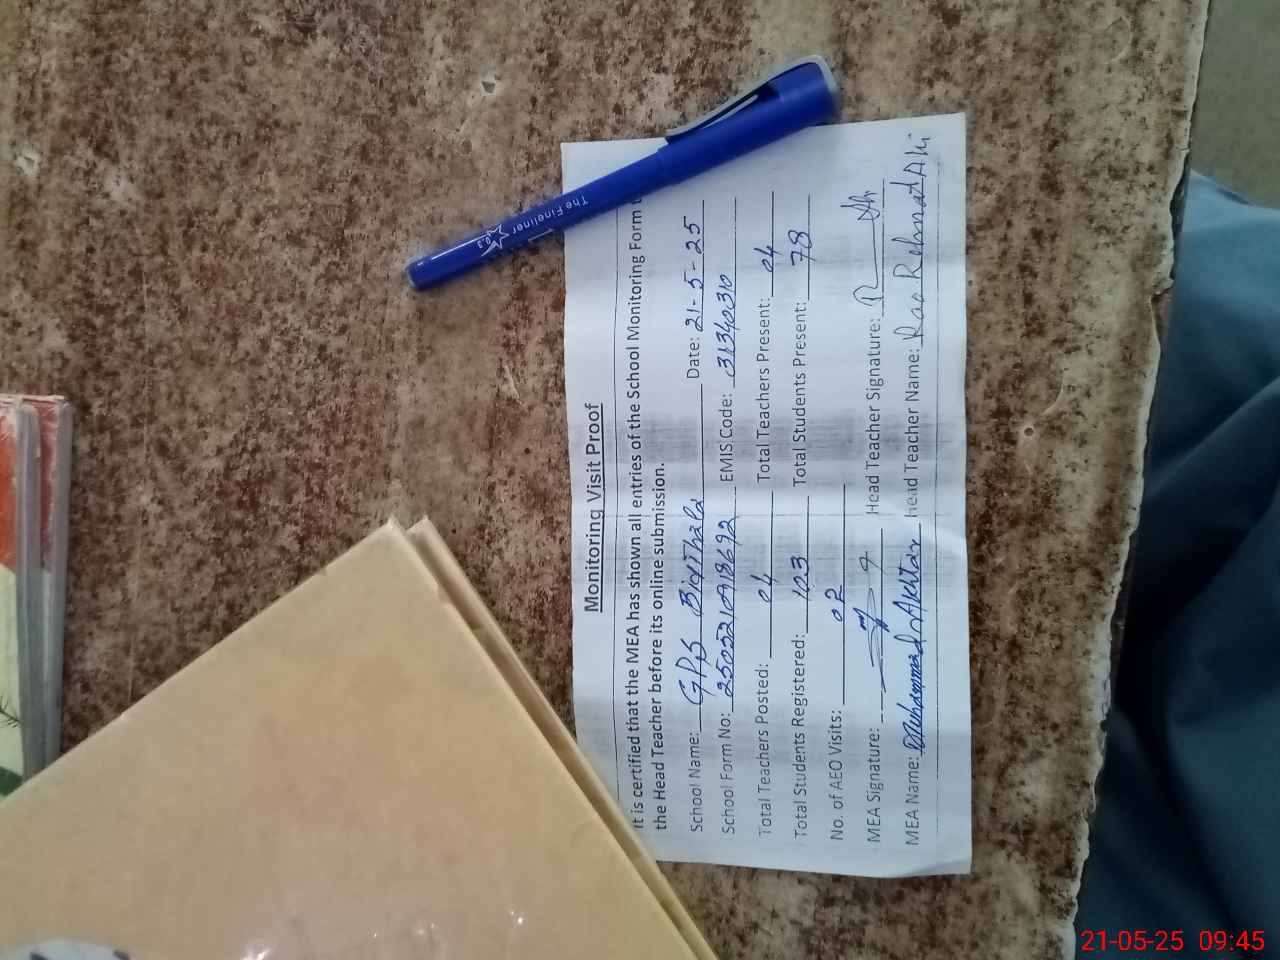 Monitoring Visit Proof
It is certified that the MEA has shown all entries of the School Monitoring Form
the Head Teacher before its online submission.
School Name: GPS Date: 21-5-25
School Form No: EMIS Code: 31340310
Total Teachers Posted: 04 Total Teachers Present: 04
Total Students Registered: 103 Total Students Present: 78
No. of AEO Visits: 02
MEA Signature: Head Teacher Signature:
MEA Name: Muhammad Akhtar Head Teacher Name: Rao Rehmat Ali
The Fineliner
0.3
21-05-25 09:45